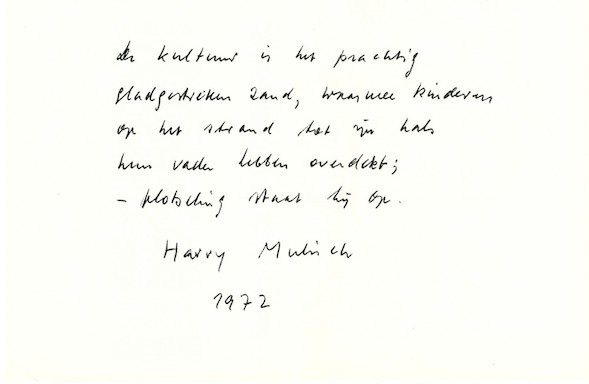 De kultuur is het prachtig
gladgestreken zand, waarmee kinderen
op het strand tot zijn hals
hun vader hebben overdekt;
– plotseling staat hij op.
Harry Mulisch
1972